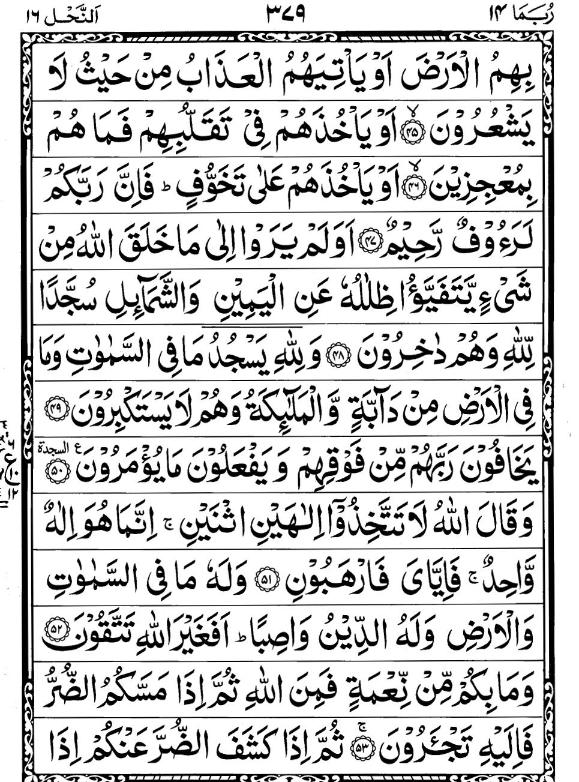 رُبَمَا ١٤ ٣٧٩ اَلنَّحْل ١٦
بِهِمُ الْاَرْضَ اَوْ يَاْتِيَهُمُ الْعَذَابُ مِنْ حَيْثُ لَا
يَشْعُرُوْنَ ﴿۴۵﴾ۙ اَوْ يَاْخُذَهُمْ فِيْ تَقَلُّبِهِمْ فَمَا هُمْ
بِمُعْجِزِيْنَ ﴿۴۶﴾ۙ اَوْ يَاْخُذَهُمْ عَلٰى تَخَوُّفٍ ؕ فَاِنَّ رَبَّكُمْ
لَرَءُوْفٌ رَّحِيْمٌ ﴿۴۷﴾ اَوَلَمْ يَرَوْا اِلٰى مَا خَلَقَ اللّٰهُ مِنْ
شَىْءٍ يَّتَفَيَّؤُا ظِلٰلُهٗ عَنِ الْيَمِيْنِ وَالشَّمَآئِلِ سُجَّدًا
لِّلّٰهِ وَهُمْ دٰخِرُوْنَ ﴿۴۸﴾ وَلِلّٰهِ يَسْجُدُ مَا فِى السَّمٰوٰتِ وَمَا
فِى الْاَرْضِ مِنْ دَآبَّةٍ وَّالْمَلٰٓئِكَةُ وَهُمْ لَا يَسْتَكْبِرُوْنَ ﴿۴۹﴾
يَخَافُوْنَ رَبَّهُمْ مِّنْ فَوْقِهِمْ وَيَفْعَلُوْنَ مَا يُؤْمَرُوْنَ ﴿۵۰﴾ ع السجدة
وَقَالَ اللّٰهُ لَا تَتَّخِذُوْۤا اِلٰهَيْنِ اثْنَيْنِ ۚ اِنَّمَا هُوَ اِلٰهٌ
وَّاحِدٌ ۚ فَاِيَّاىَ فَارْهَبُوْنِ ﴿۵۱﴾ وَلَهٗ مَا فِى السَّمٰوٰتِ
وَالْاَرْضِ وَلَهُ الدِّيْنُ وَاصِبًا ؕ اَفَغَيْرَ اللّٰهِ تَتَّقُوْنَ ﴿۵۲﴾
وَمَا بِكُمْ مِّنْ نِّعْمَةٍ فَمِنَ اللّٰهِ ثُمَّ اِذَا مَسَّكُمُ الضُّرُّ
فَاِلَيْهِ تَجْئَرُوْنَ ﴿۵۳﴾ۚ ثُمَّ اِذَا كَشَفَ الضُّرَّ عَنْكُمْ اِذَا